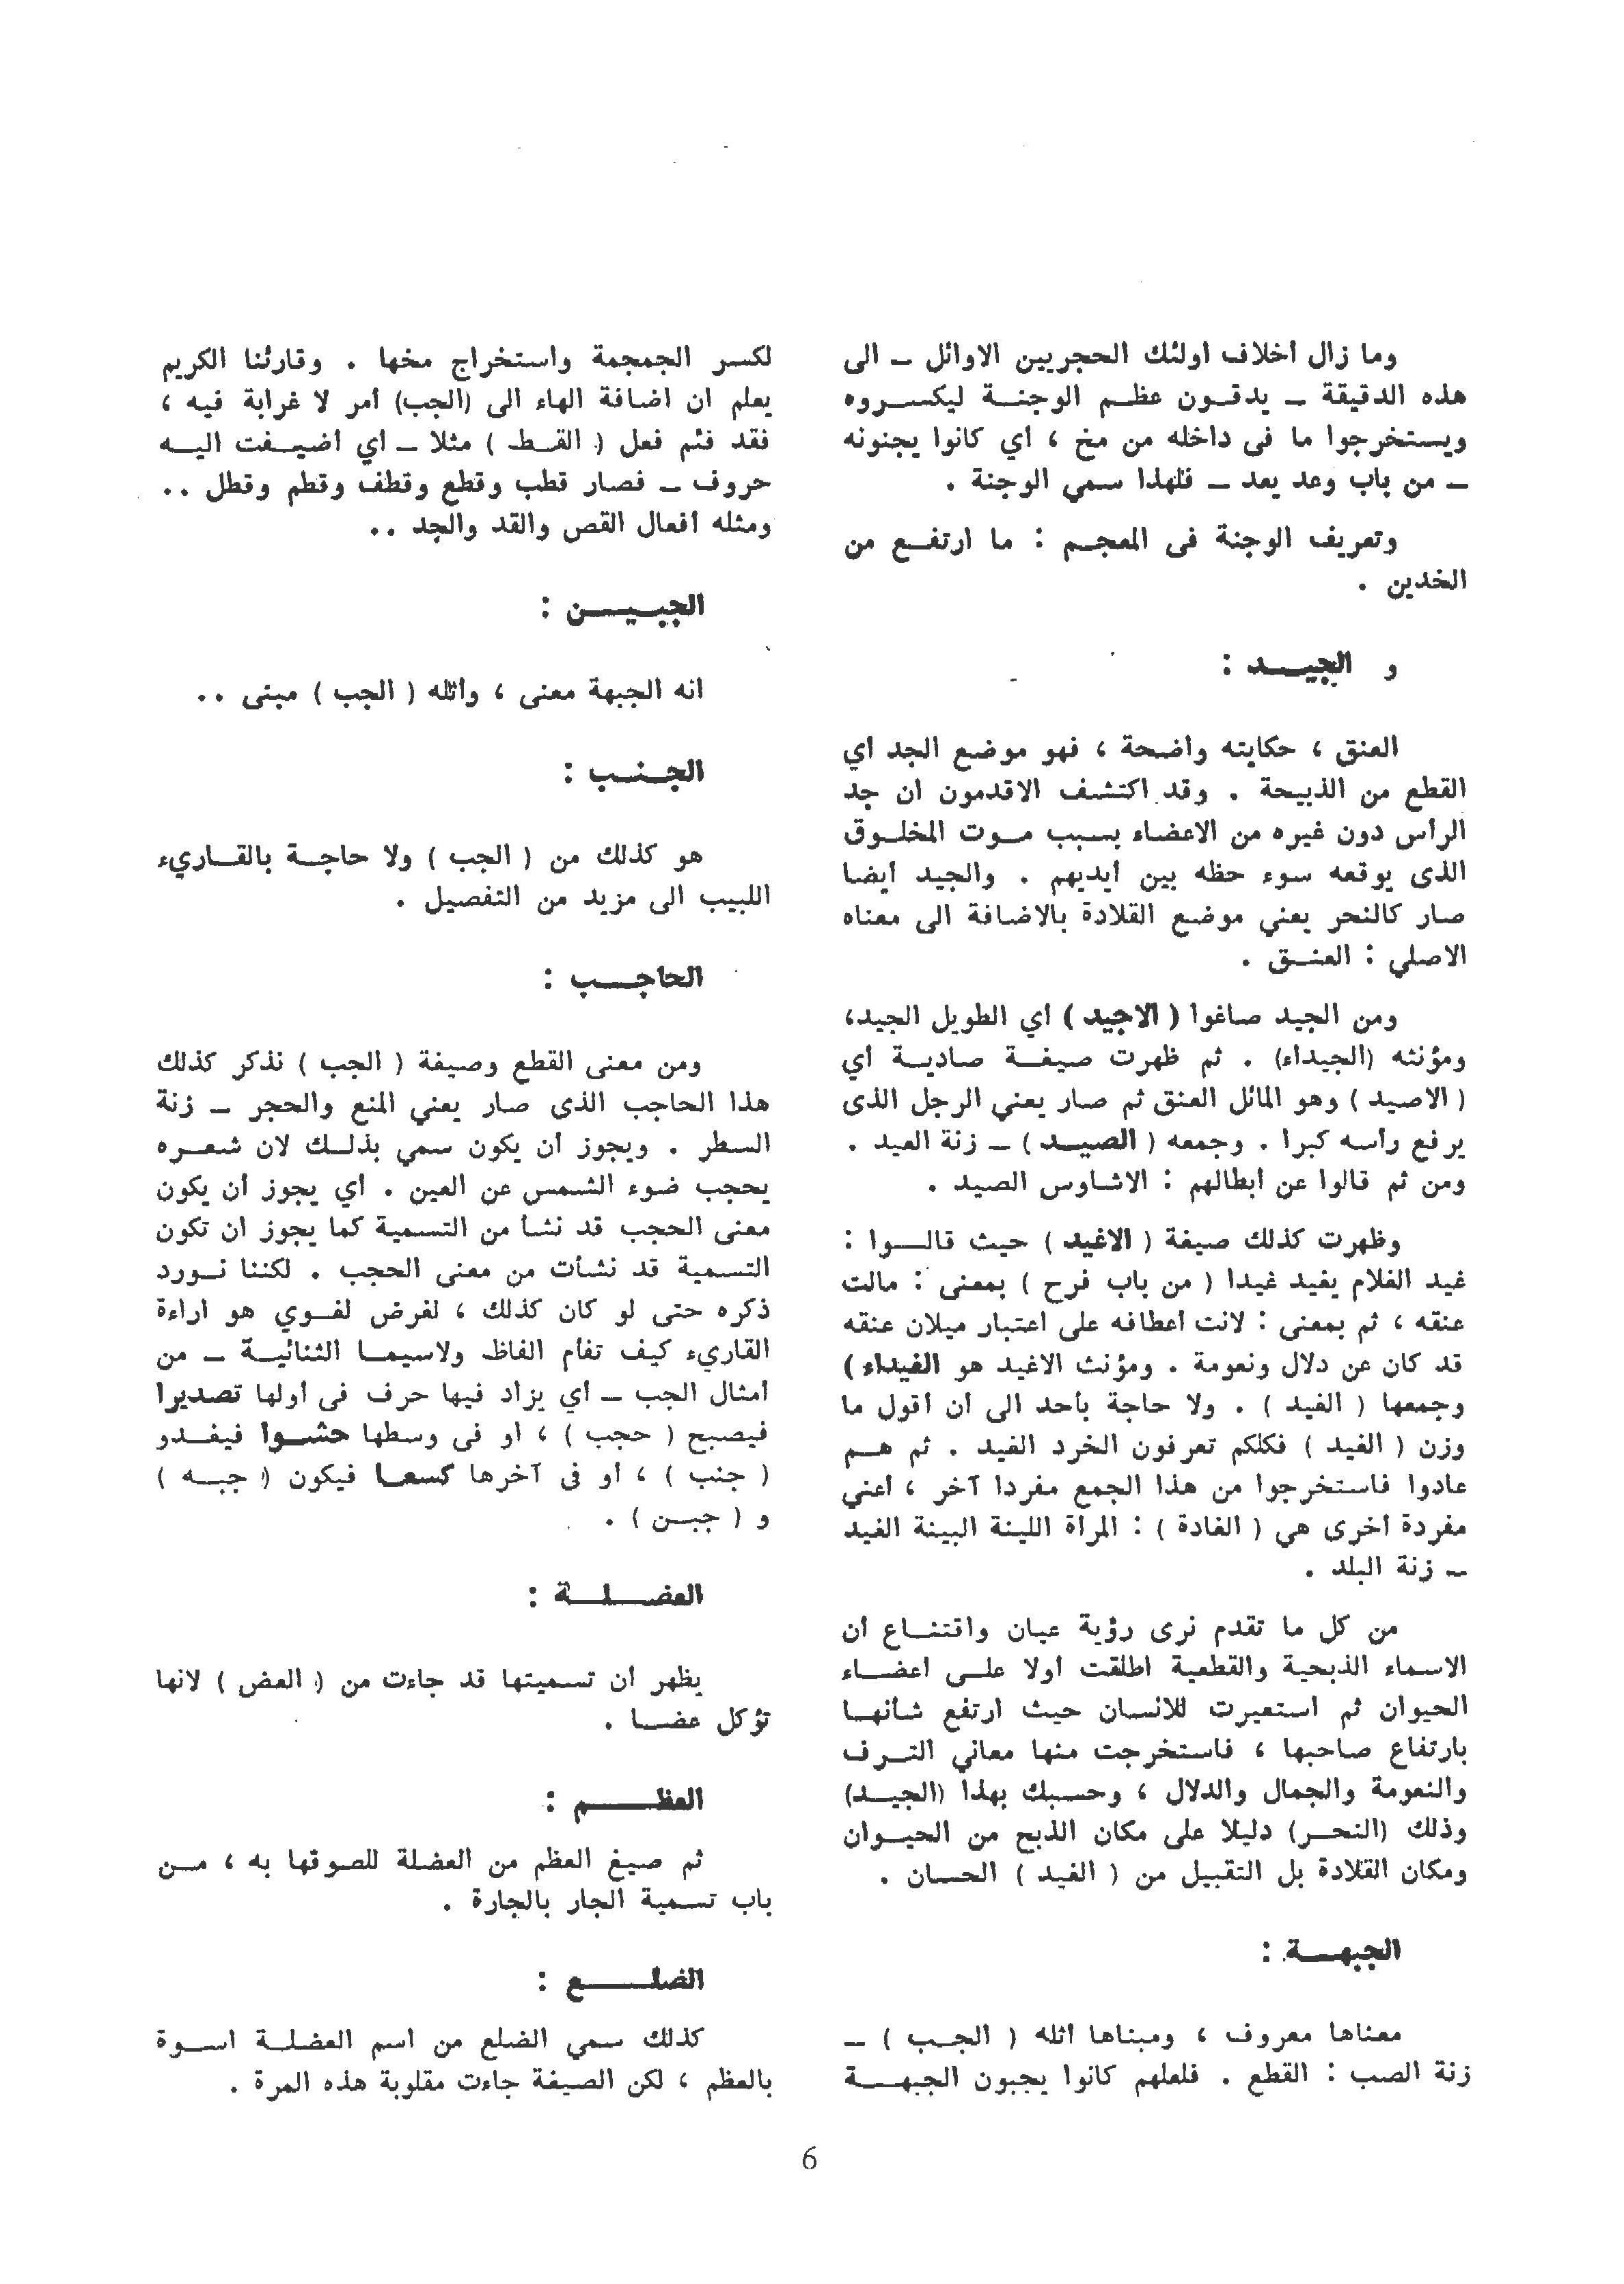 وما زال أخلاف أولئك الحجريين الاوائل ــ الى
هذه الدقيقة ــ يدقون عظم الوجنة ليكسروه
ويستخرجوا ما فى داخله من مخ ، أي كانوا يجنونه
ــ من باب وعد يعد ــ فلهذا سمي الوجنة .
وتعريف الوجنة فى المعجم : ما ارتفع من
الخدين .
و الجيد :
العنق ، حكايته واضحة ، فهو موضع الجد أي
القطع من الذبيحة . وقد اكتشف الاقدمون ان جد
الرأس دون غيره من الاعضاء يسبب موت المخلوق
الذى يوقعه سوء حظه بين أيديهم . والجيد أيضا
صار كالنحر يعني موضع القلادة بالاضافة الى معناه
الاصلي : العنق .
ومن الجيد صاغوا ( الاجيد ) أي الطويل الجيد،
ومؤنثه (الجيداء) . ثم ظهرت صيغة صادية أي
( الاصيد ) وهو المائل العنق ثم صار يعني الرجل الذى
يرفع رأسه كبرا . وجمعه ( الصيد ) ــ زنة العيد .
ومن ثم قالوا عن أبطالهم : الاشاوس الصيد .
وظهرت كذلك صيغة ( الاغيد ) حيث قالوا :
غيد الغلام يغيد غيدا ( من باب فرح ) بمعنى : مالت
عنقه ، ثم بمعنى : لانت أعطافه على اعتبار ميلان عنقه
قد كان عن دلال ونعومة . ومؤنث الاغيد هو الغيداء )
وجمعها ( الغيد ) . ولا حاجة بأحد الى أن أقول ما
وزن ( الغيد ) فكلكم تعرفون الخرد الغيد . ثم هم
عادوا فاستخرجوا من هذا الجمع مفردا آخر ، أعني
مفردة أخرى هي ( الغادة ) : المرأة اللينة البينة الغيد
ــ زنة البلد .
من كل ما تقدم نرى رؤية عيان واقتناع أن
الاسماء الذبحية والقطعية اطلقت أولا على أعضاء
الحيوان ثم استعيرت للانسان حيث ارتفع شأنها
بارتفاع صاحبها ، فاستخرجت منها معاني الترف
والنعومة والجمال والدلال ، وحسبك بهذا (الجيد)
وذلك (النحر) دليلا على مكان الذبح من الحيوان
ومكان القلادة بل التقبيل من ( الغيد ) الحسان .
الجبهة :
معناها معروف ، ومبناها اثله ( الجب ) ــ
زنة الصب : القطع . فلعلهم كانوا يجبون الجبهة
لكسر الجمجمة واستخراج مخها . وقارئنا الكريم
يعلم ان اضافة الهاء الى (الجب) أمر لا غرابة فيه ،
فقد فئم فعل ( القط ) مثلا ــ أي أضيفت اليه
حروف ــ فصار قطب وقطع وقطف وقطم وقطل ..
ومثله أفعال القص والقد والجد ..
الجبين :
انه الجبهة معنى ، واثله ( الجب ) مبنى ..
الجنب :
هو كذلك من ( الجب ) ولا حاجة بالقاريء
اللبيب الى مزيد من التفصيل .
الحاجب :
ومن معنى القطع وصيغة ( الجب ) نذكر كذلك
هذا الحاجب الذى صار يعني المنع والحجر ــ زنة
السطر . ويجوز أن يكون سمي بذلك لان شعره
يحجب ضوء الشمس عن العين . أي يجوز أن يكون
معنى الحجب قد نشأ من التسمية كما يجوز ان تكون
التسمية قد نشأت من معنى الحجب . لكننا نورد
ذكره حتى لو كان كذلك ، لغرض لغوي هو اراءة
القاريء كيف تفأم الفاظ ولاسيما الثنائية ــ من
أمثال الجب ــ أي يزاد فيها حرف فى أولها تصديرا
فيصبح ( حجب ) ، أو فى وسطها حشوا فيغدو
( جنب ) ، أو فى آخرها كسعا فيكون ( جبه )
و ( جبن ) .
العضلة :
يظهر أن تسميتها قد جاءت من ( العض ) لانها
تؤكل عضا .
العظم :
ثم صيغ العظم من العضلة للصوقها به ، من
باب تسمية الجار بالجارة .
الضلع :
كذلك سمي الضلع من اسم العضلة اسوة
بالعظم ، لكن الصيغة جاءت مقلوبة هذه المرة .
6